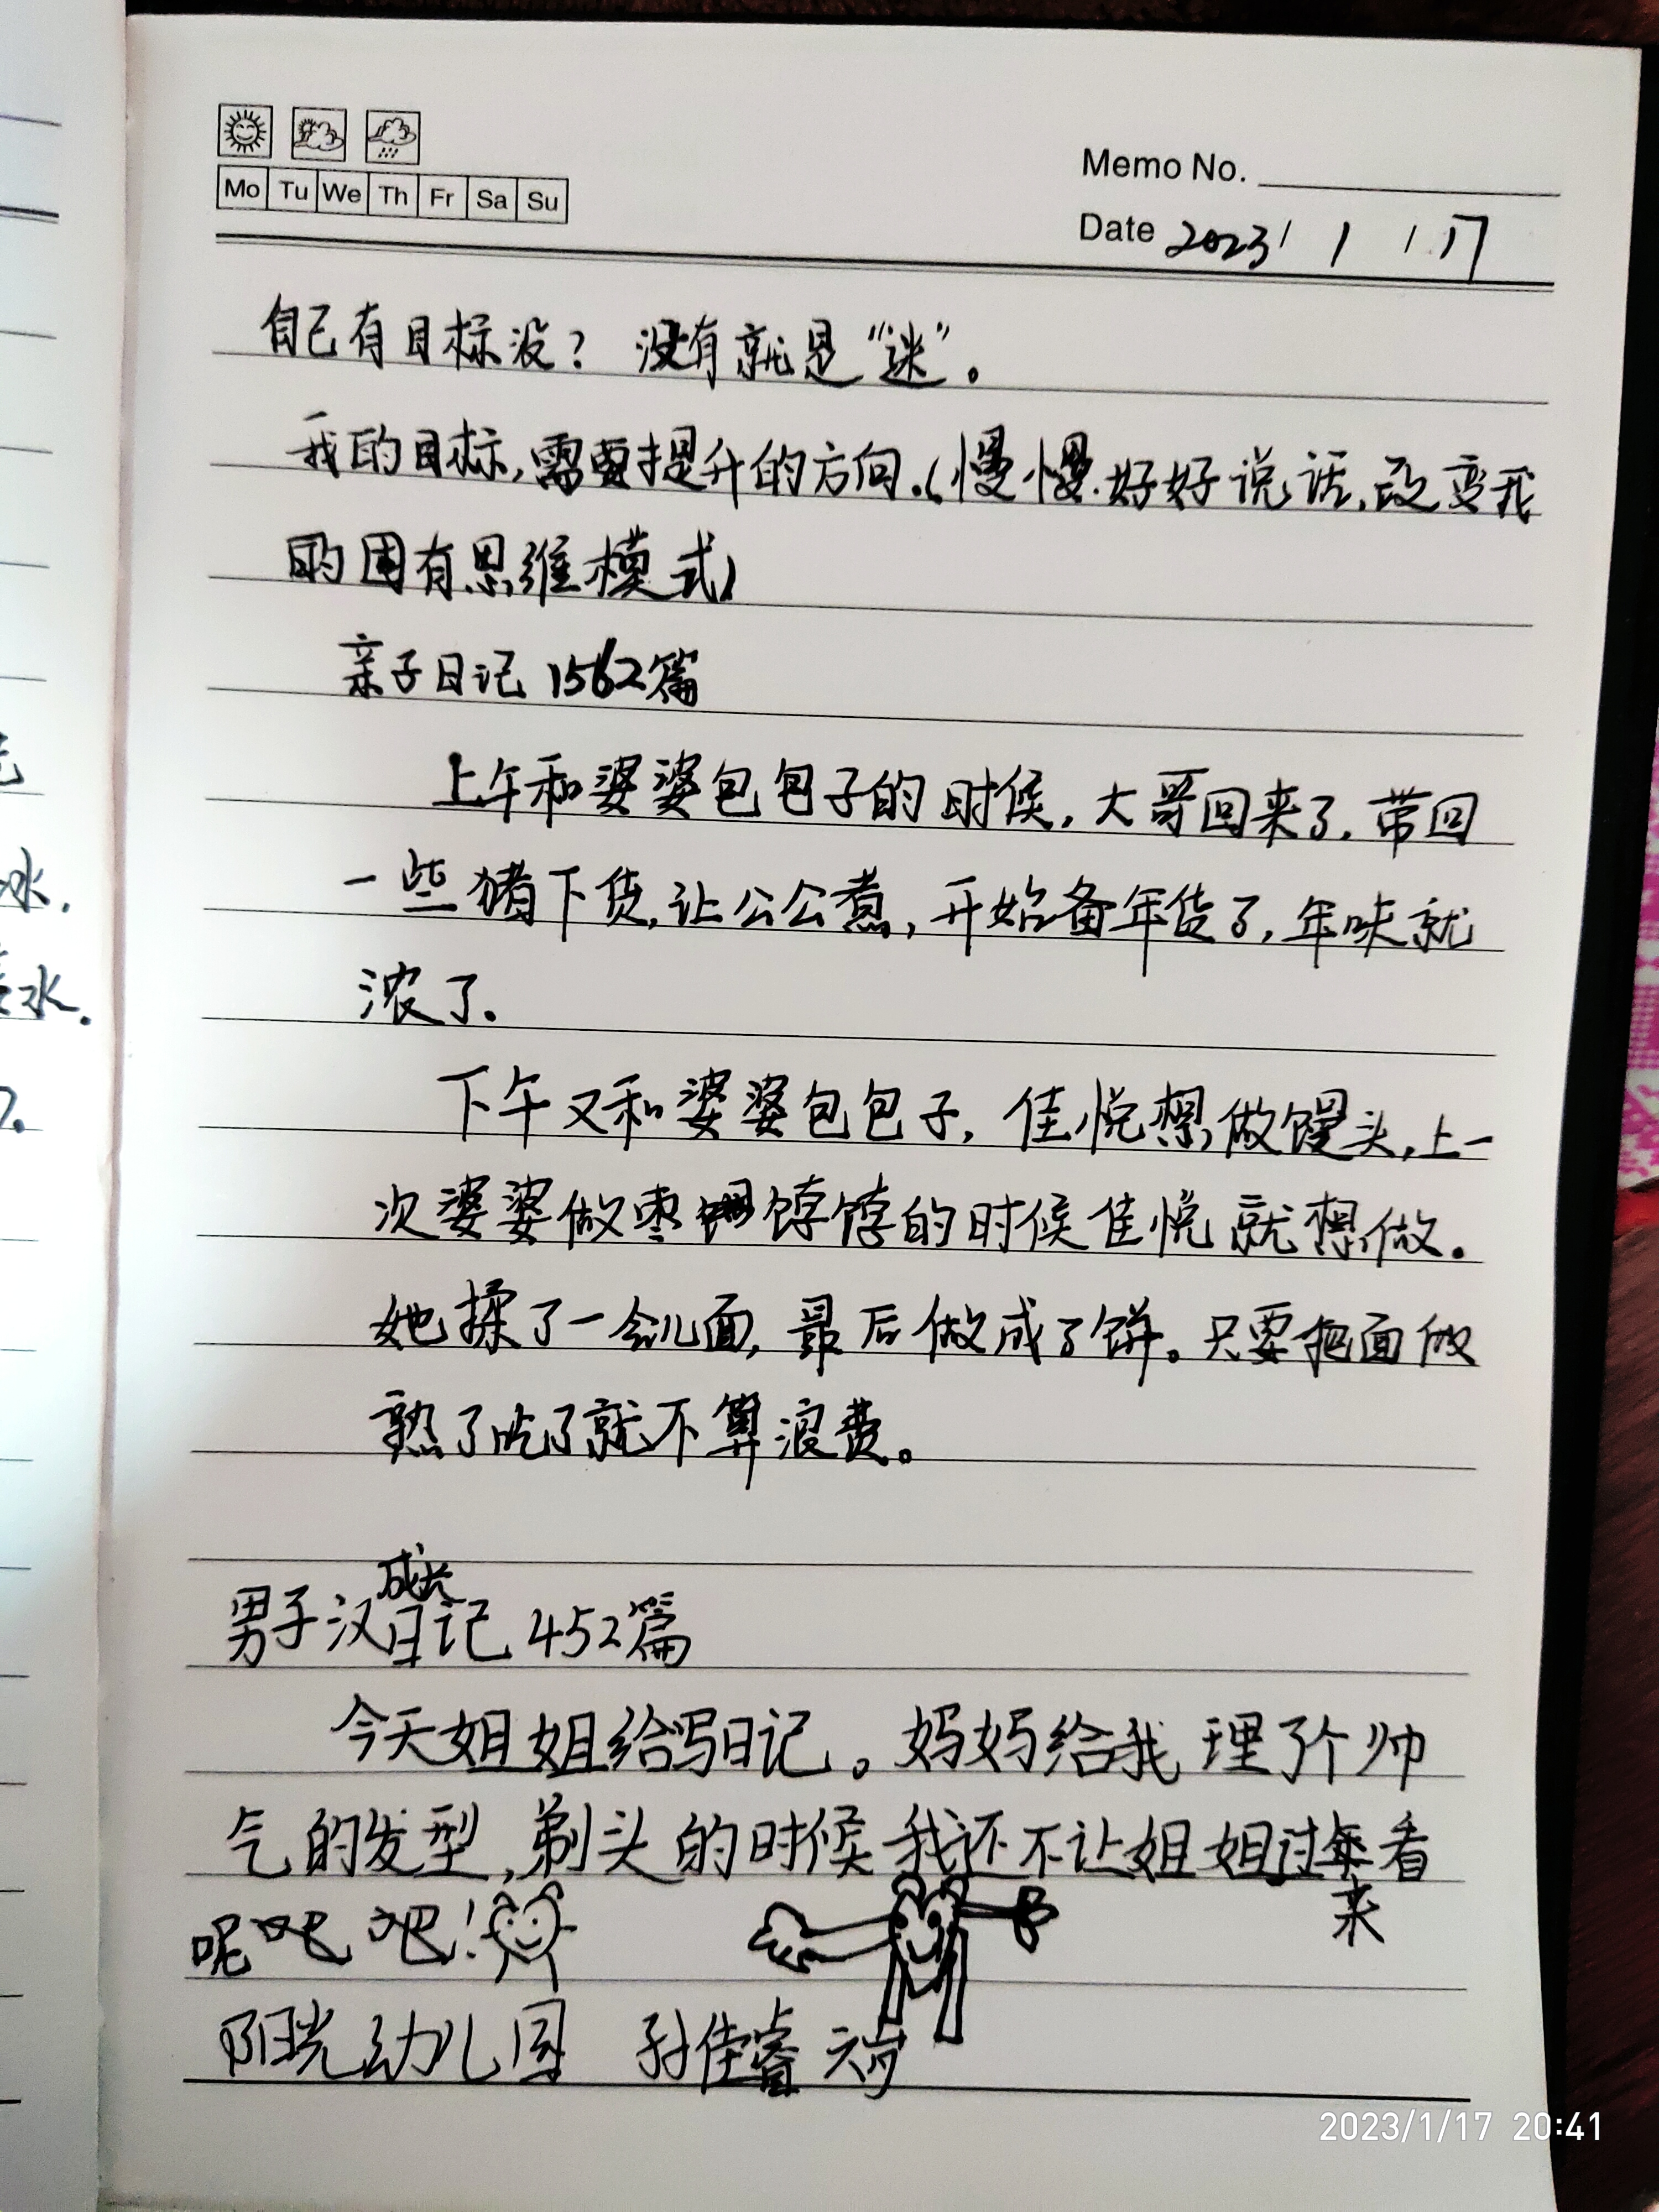 Mo Tu We Th Fr Sa Su
Memo No.
Date 2023/ 1 / 17
自己有目标没？没有就是“迷”。
我的目标，需要提升的方向.（慢慢.好好说话，改变我
的固有思维模式）
亲子日记 1562篇
上午和婆婆包包子的时候，大哥回来了，带回
一些猪下货，让公公煮，开始备年货了，年味就
浓了.
下午又和婆婆包包子，佳悦想做馒头，上一
次婆婆做枣饽饽的时候佳悦就想做.
她揉了一会儿面，最后做成了饼。只要把面做
熟了吃了就不算浪费。
成长
男子汉日记 452篇
今天姐姐给写日记。妈妈给我理了个帅
气的发型，剃头的时候我还不让姐姐过来看
来
呢吧吧！
阳光幼儿园 孙佳睿 六岁
水.
水.
2023/1/17 20:41